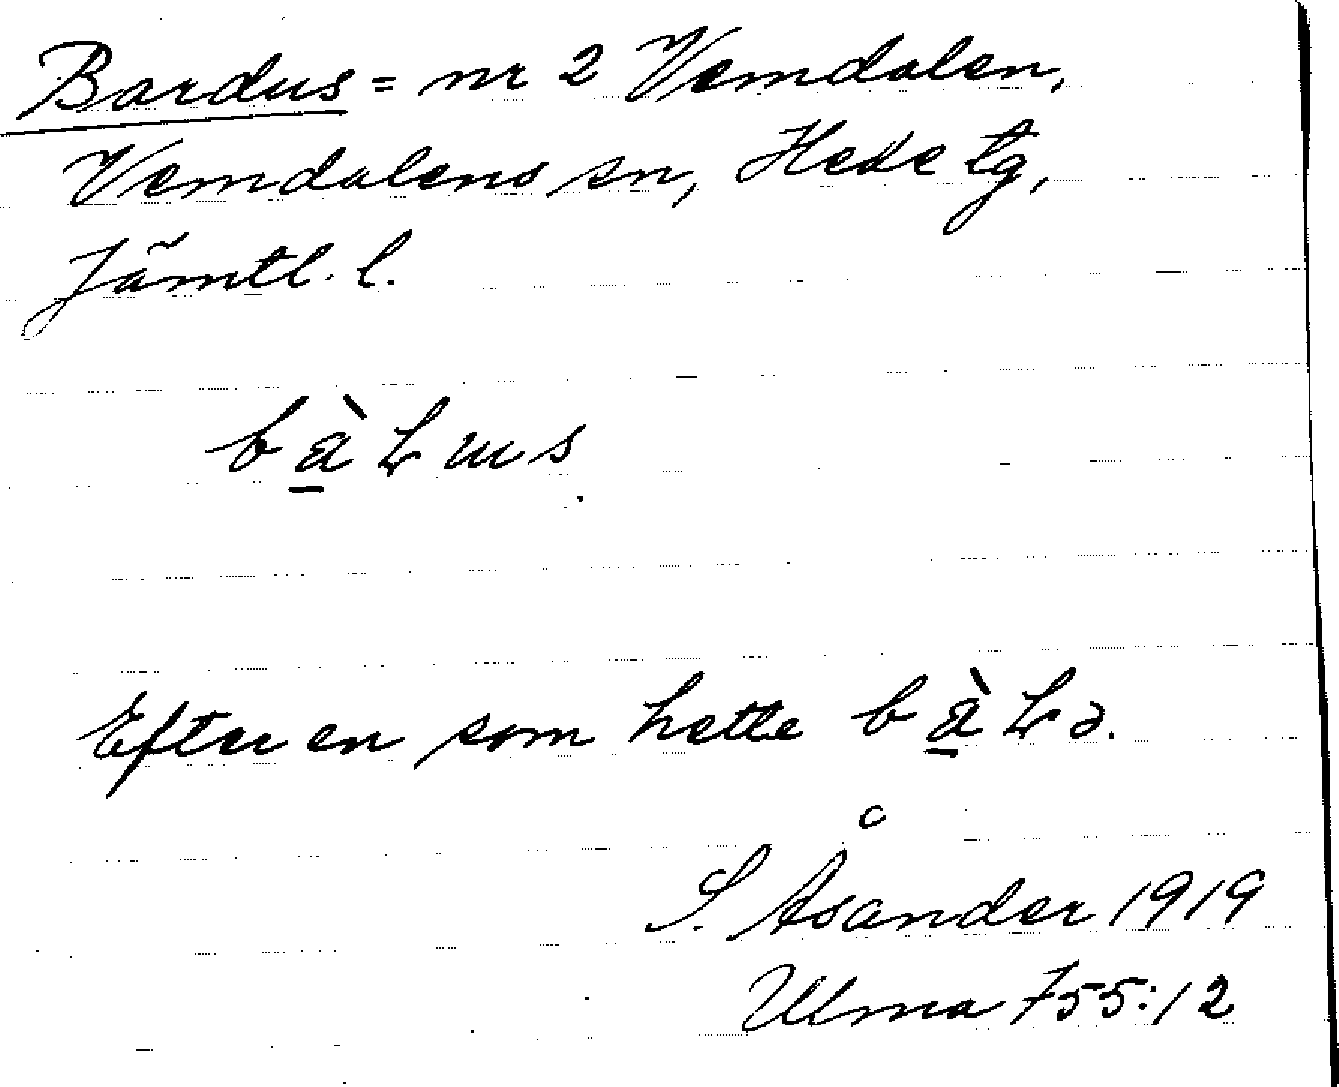 Bardus = nr 2 Vemdalen,
Vemdalens sn, Hede tg,
Jämtl. l.
bàLus
Efter en som hette bàLə.
S. Åsander 1919
Ulma 755:12